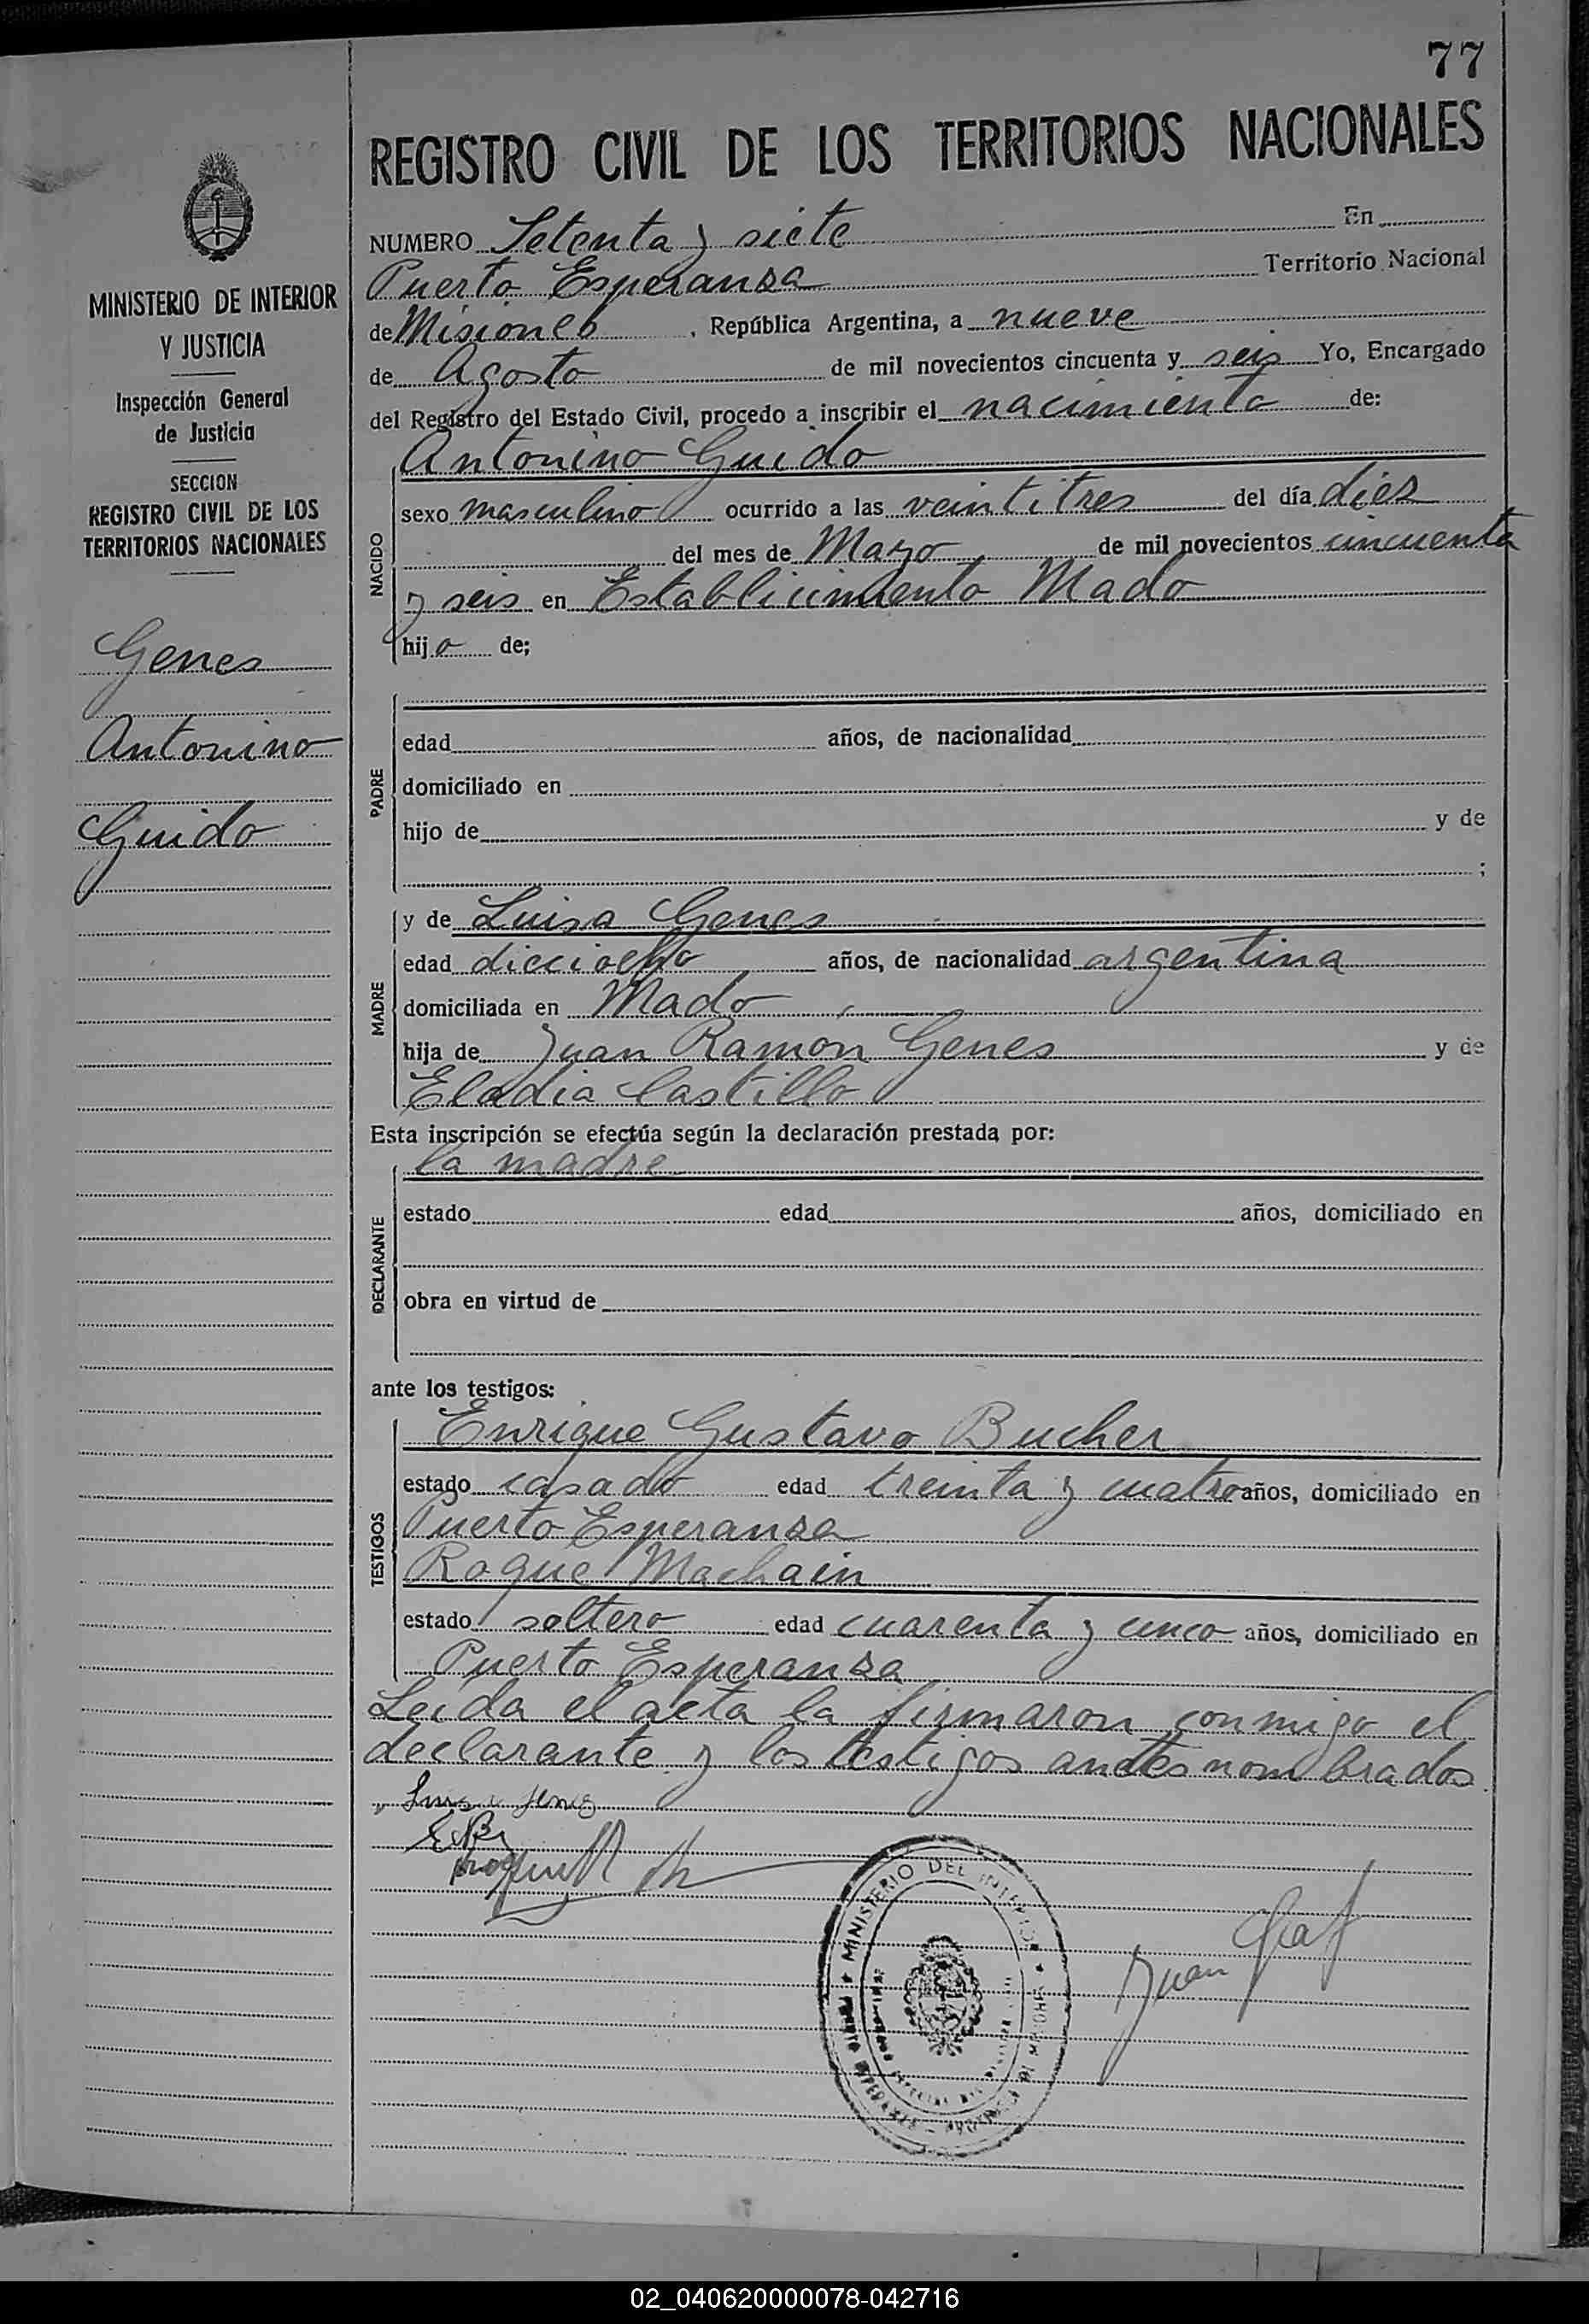 77
REGISTRO CIVIL DE LOS TERRITORIOS NACIONALES
MINISTERIO DE INTERIOR
Y JUSTICIA
Inspección General
de Justicia
SECCION
REGISTRO CIVIL DE LOS
TERRITORIOS NACIONALES
Genes
Antonino
Guido
NUMERO Setenta y siete En
Puerto Esperanza Territorio Nacional
de Misiones, República Argentina, a nueve
de Agosto de mil novecientos cincuenta y seis Yo, Encargado
del Registro del Estado Civil, procedo a inscribir el nacimiento de:
NACIDO
Antonino Guido
sexo masculino ocurrido a las veintitres del día diez
del mes de Mayo de mil novecientos cincuenta
y seis en Establicimiento Mado
hijo de;
PADRE
edad años, de nacionalidad
domiciliado en
hijo de y de
;
MADRE
y de Luisa Genes
edad dieciocho años, de nacionalidad argentina
domiciliada en Mado
hija de Juan Ramon Genes y de
Eladia Castillo
Esta inscripción se efectúa según la declaración prestada por:
DECLARANTE
la madre
estado edad años, domiciliado en
obra en virtud de
ante los testigos:
TESTIGOS
Enrique Gustavo Bucher
estado casado edad treinta y cuatro años, domiciliado en
Puerto Esperanza
Roque Machain
estado soltero edad cuarenta y cinco años, domiciliado en
Puerto Esperanza
Leída el acta la firmaron conmigo el
declarante y los testigos antes nombrados
MINISTERIO DEL INTERIOR
Juan Graf
02_040620000078-042716